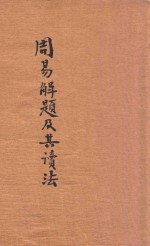 周易解題及其讀法